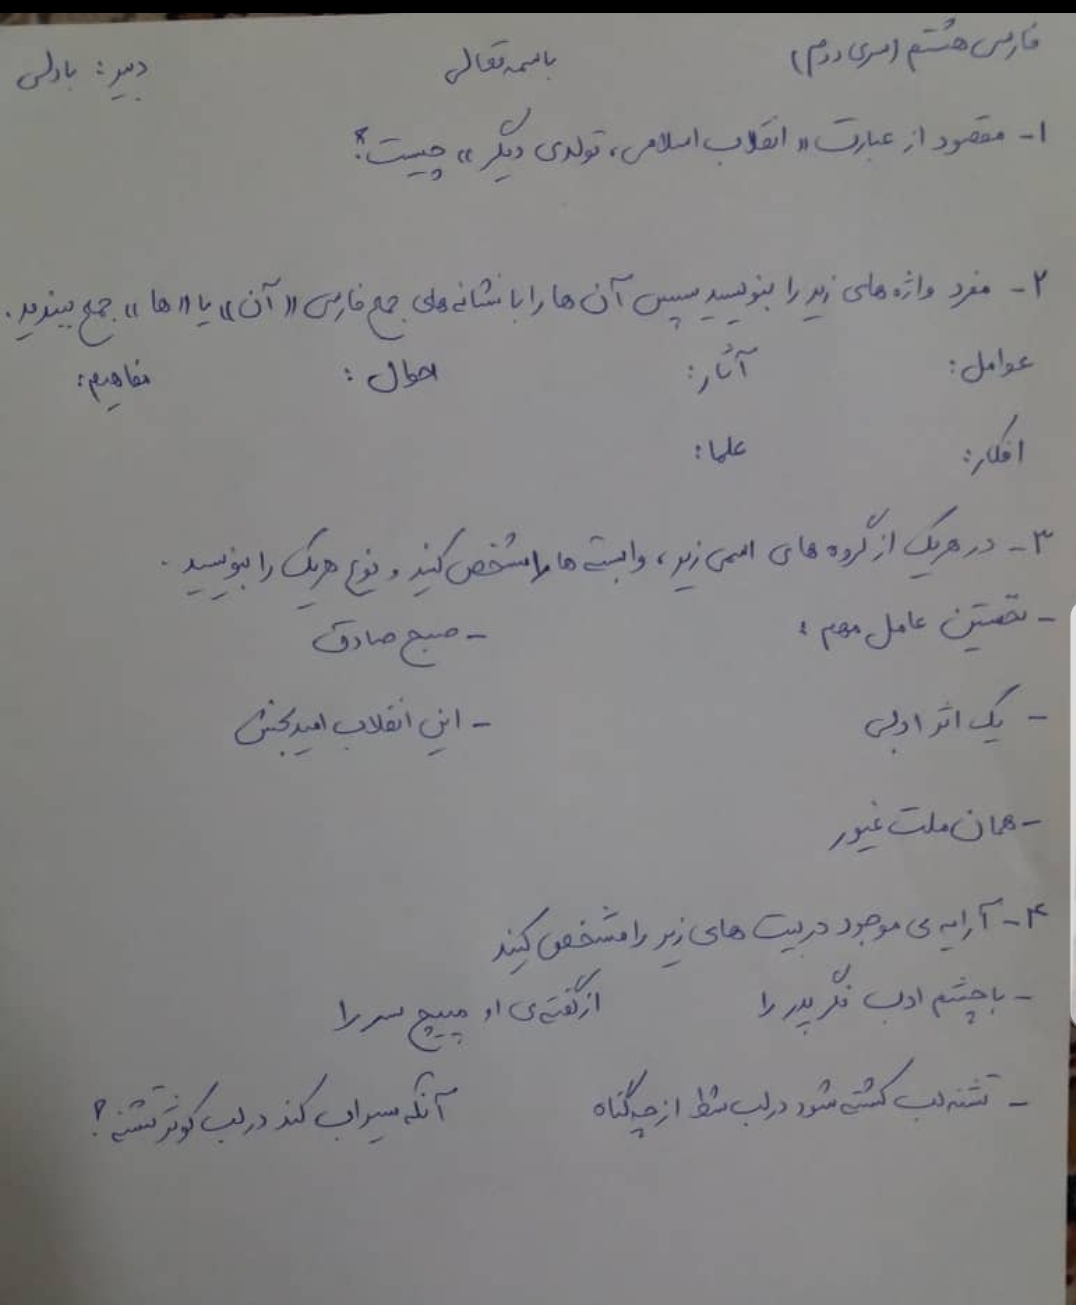 فارسی هشتم (سری دوم) باسمه تعالی دبیر: بادلی
۱- مقصود از عبارت «انقلاب اسلامی، تولدی دیگر» چیست؟
۲- مفرد واژه های زیر را بنویسید سپس آن ها را با نشانه های جمع فارسی «آن» یا «ها» جمع ببندید.
عوامل: آثار: احوال: مفاهیم:
افکار: علما:
۳- در هریک از گروه های اسمی زیر، وابسته ها را مشخص کنید و نوع هریک را بنویسید.
- نخستین عامل مهم: - صبح صادق
- یک اثر ادبی - این انقلاب امیدبخش
- همان ملت غیور
۴- آرایه ی موجود در بیت های زیر را مشخص کنید
- با چشم ادب نگر پدر را از گفته ی او مپیچ سر را
- تشنه لب کشته شود در لب شط از چه گناه آنکه سیراب کند در لب کوثر تشنه؟